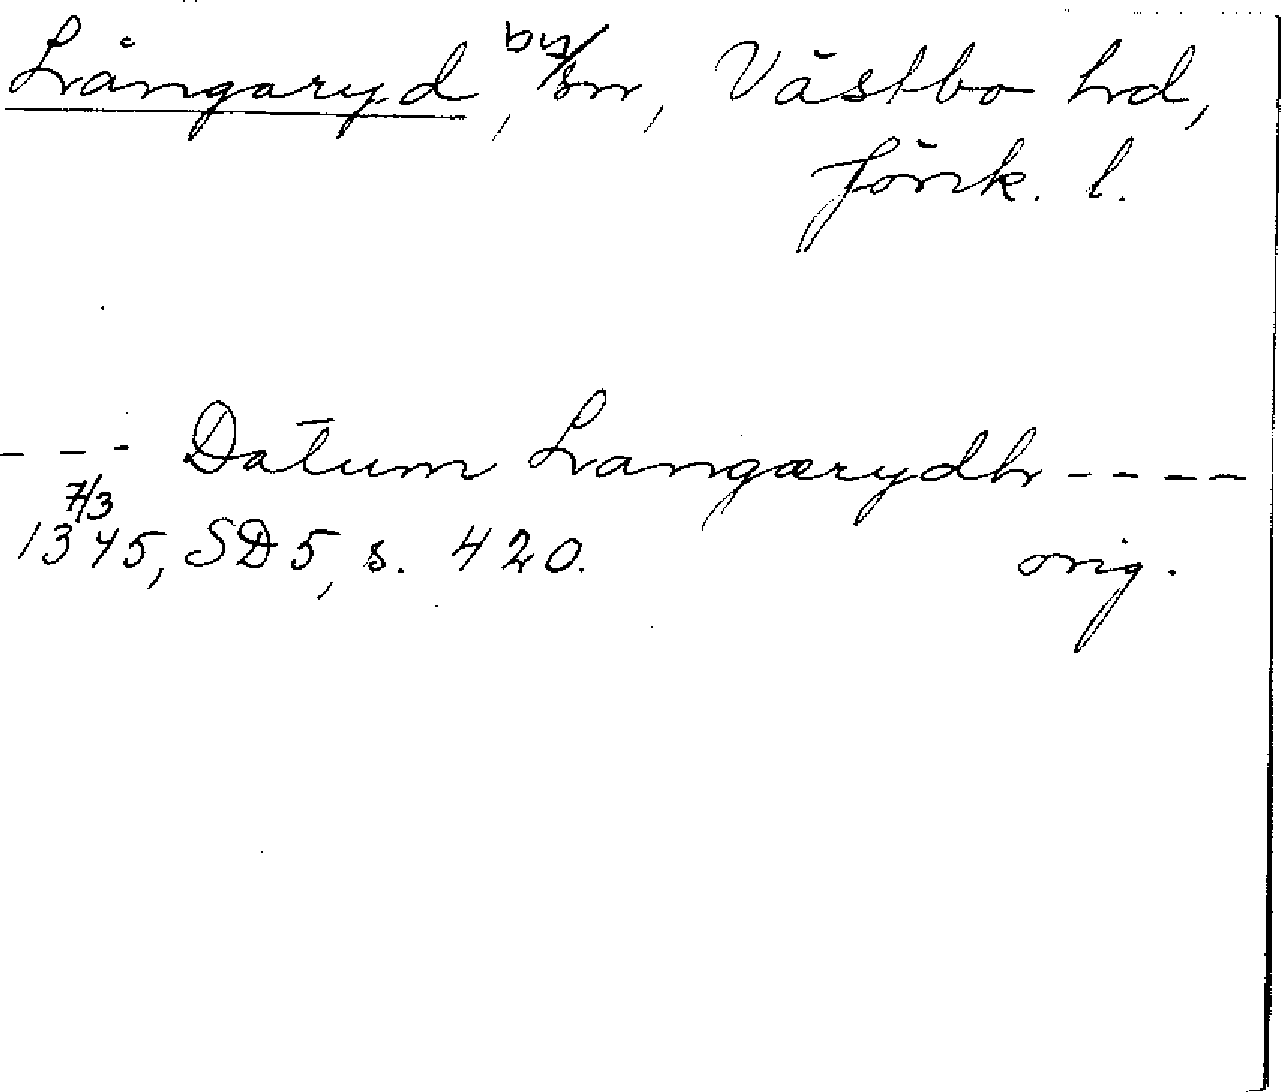 Långaryd, by/sn, Västbo hd,
Jönk. l.
--- Datum Langærydh ----
7/3
1345, SD 5, s. 420. orig.